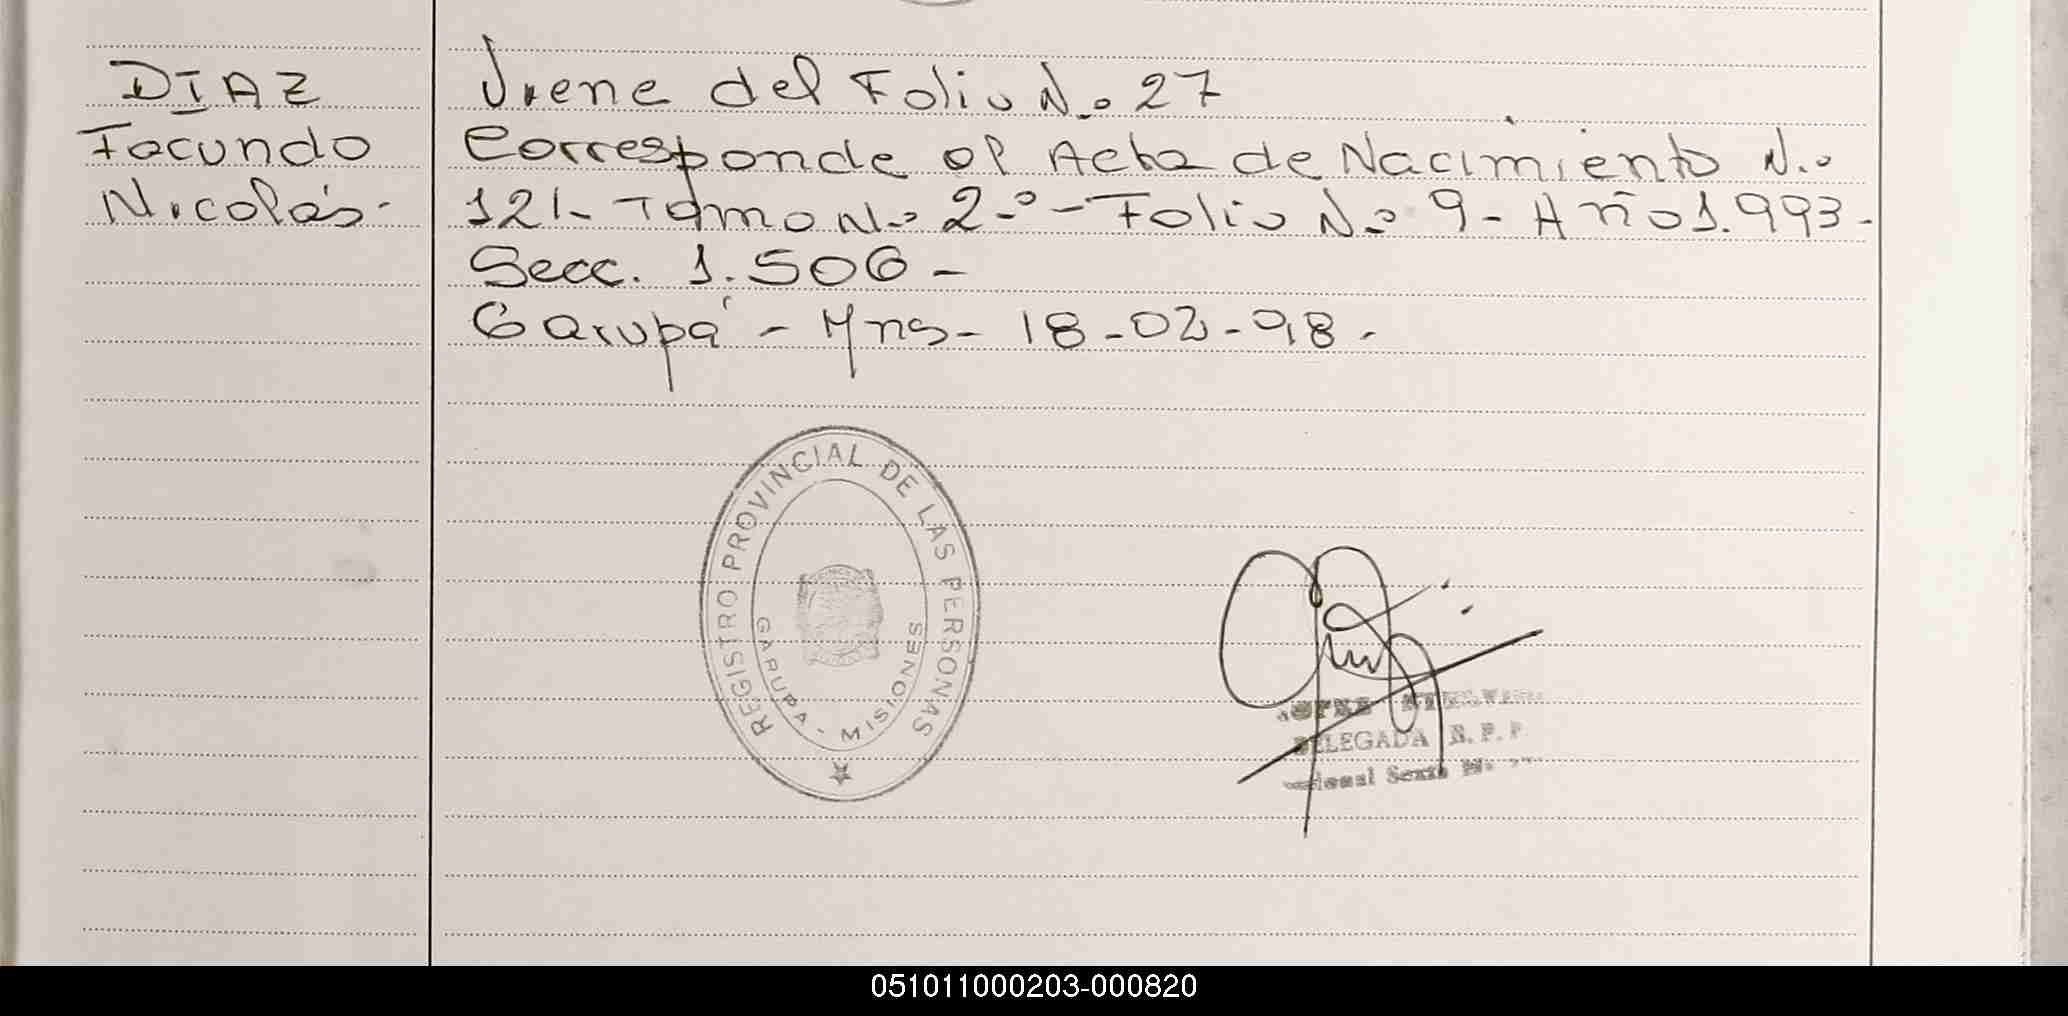 DIAZ
Facundo
Nicolás.
Viene del Folio N.o 27
Corresponde al Acta de Nacimiento N.o
121- Tomo N.o 2.o - Folio N.o 9 - Año 1.993.-
Secc. 1.506 -
Garupá - Mns - 18-02-98.
REGISTRO PROVINCIAL DE LAS PERSONAS
GARUPA - MISIONES
DELEGADA R. P. P.
051011000203-000820